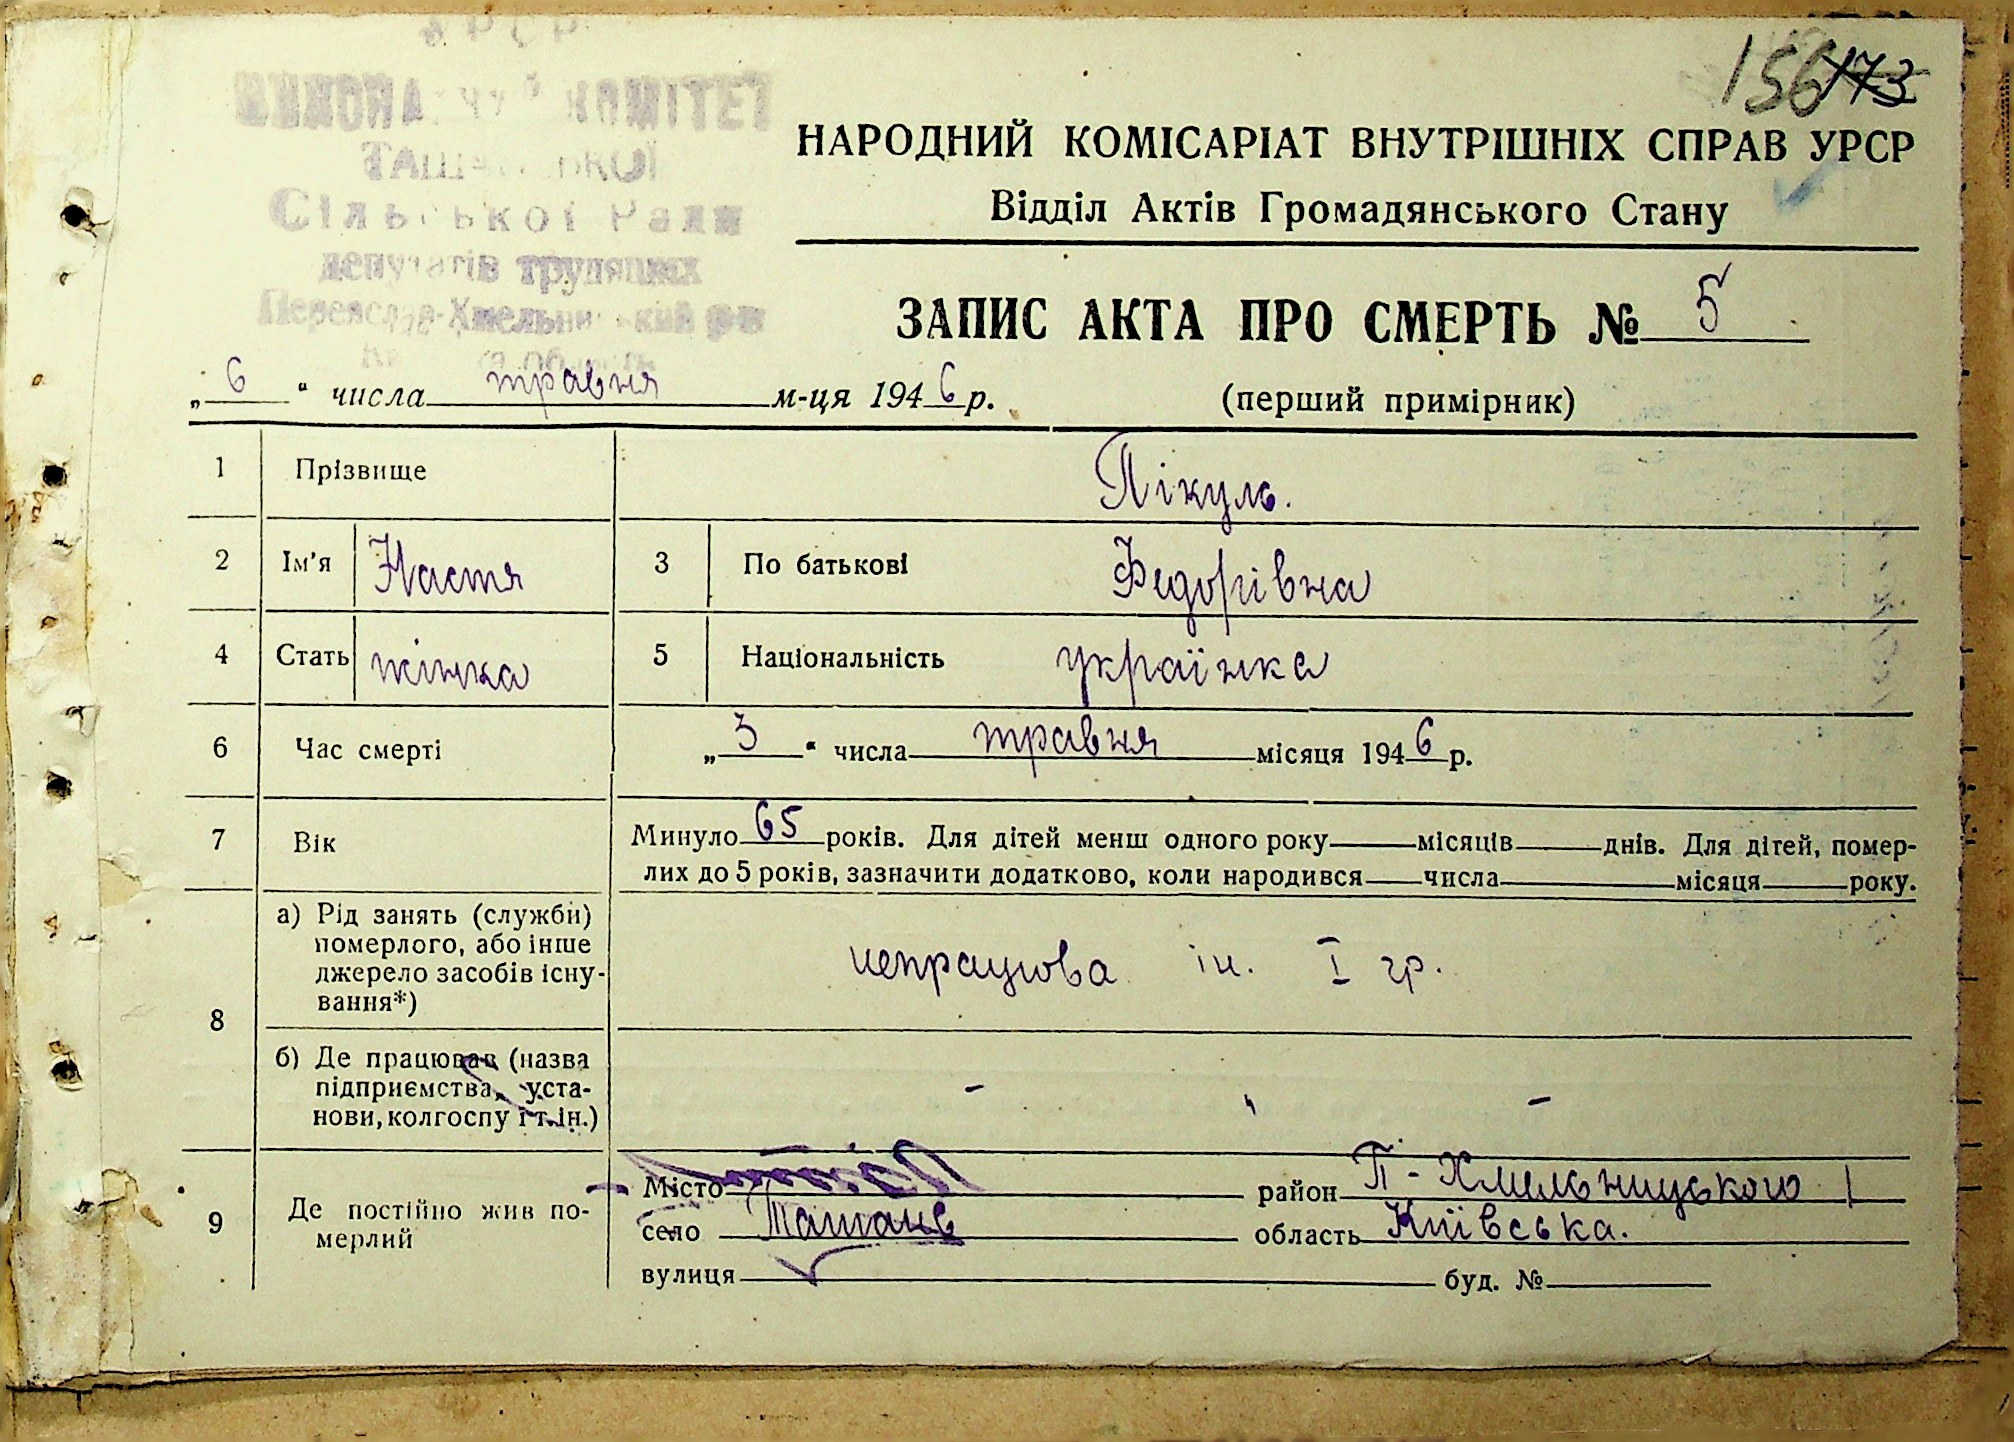 УРСР
ВИКОНАВЧИЙ КОМІТЕТ
ТАШАНСЬКОЇ
Сільської Ради
депутатів трудящих
Переяслав-Хмельницький р-н
156 173
НАРОДНИЙ КОМІСАРІАТ ВНУТРІШНІХ СПРАВ УРСР
Відділ Актів Громадянського Стану
ЗАПИС АКТА ПРО СМЕРТЬ № 5
„6“ числа травня м-ця 1946 р.
(перший примірник)
1 Прізвище Пікуль.
2 Ім'я Настя 3 По батькові Федорівна
4 Стать жінка 5 Національність українка
6 Час смерті „3“ числа травня місяця 1946 р.
7 Вік Минуло 65 років. Для дітей менш одного року місяців днів. Для дітей, помер-
лих до 5 років, зазначити додатково, коли народився числа місяця року.
8 а) Рід занять (служби)
померлого, або інше
джерело засобів існу-
вання*)
непрацюва ін. І гр.
б) Де працював (назва
підприємства, уста-
нови, колгоспу і т. ін.)
- -
9 Де постійно жив по-
мерлий
Місто район П-Хмельницького
село Ташань область Київська.
вулиця буд. №